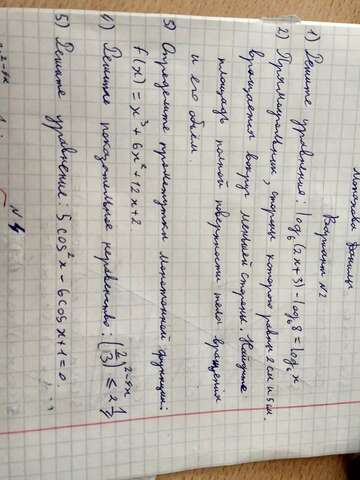 Вариант №2
1) Решите уравнение: log₆(2x+3) - log₆8 = log₆x
2) Прямоугольник, стороны которого равны 2 см и 5 см.
вращается вокруг меньшей стороны. Найдите
площадь полной поверхности тела вращения
и его объём.
3) Определите промежутки монотонной функции:
f(x) = x³ + 6x² + 12x + 2
4) Решите показательное неравенство: (2/3)^(2-4x) ≤ 2 1/4
5) Решите уравнение: 5cos²x - 6cosx + 1 = 0.